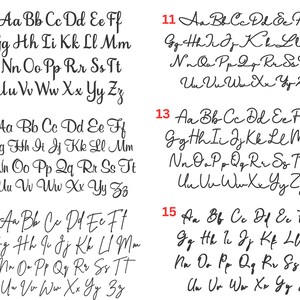 Aa Bb Cc Dd Ee Ff
Gg Hh Ii Kk Ll Mm
Nn Oo Pp Rr Ss Tt
Uu Vv Ww Xx Yy Zz
Aa Bb Cc Dd Ee Ff
Gg Hh Ii Jj Kk Ll Mm
Nn Oo Pp Qq Rr Ss Tt
Uu Vv Ww Xx Yy Zz
Aa Bb Cc Dd Ee Ff
Gg Hh Ii Jj Kk Ll Mm
Nn Oo Pp Qq Rr Ss Tt
Uu Vv Ww Xx Yy Zz
11
Aa Bb Cc Dd Ee Ff
Gg Hh Ii Jj Kk Ll
Nn Oo Pp Qq Rr Ss
Uu Vv Ww Xx Yy
13
Aa Bb Cc Dd Ee Ff
Gg Hh Ii Jj Kk Ll Mm
Nn Oo Pp Qq Rr Ss
Uu Vv Ww Xx Yy
15
Aa Bb Cc Dd Ee
Gg Hh Ii Jj Kk Ll
Nn Oo Pp Qq Rr Ss
Uu Vv Ww Xx Yy